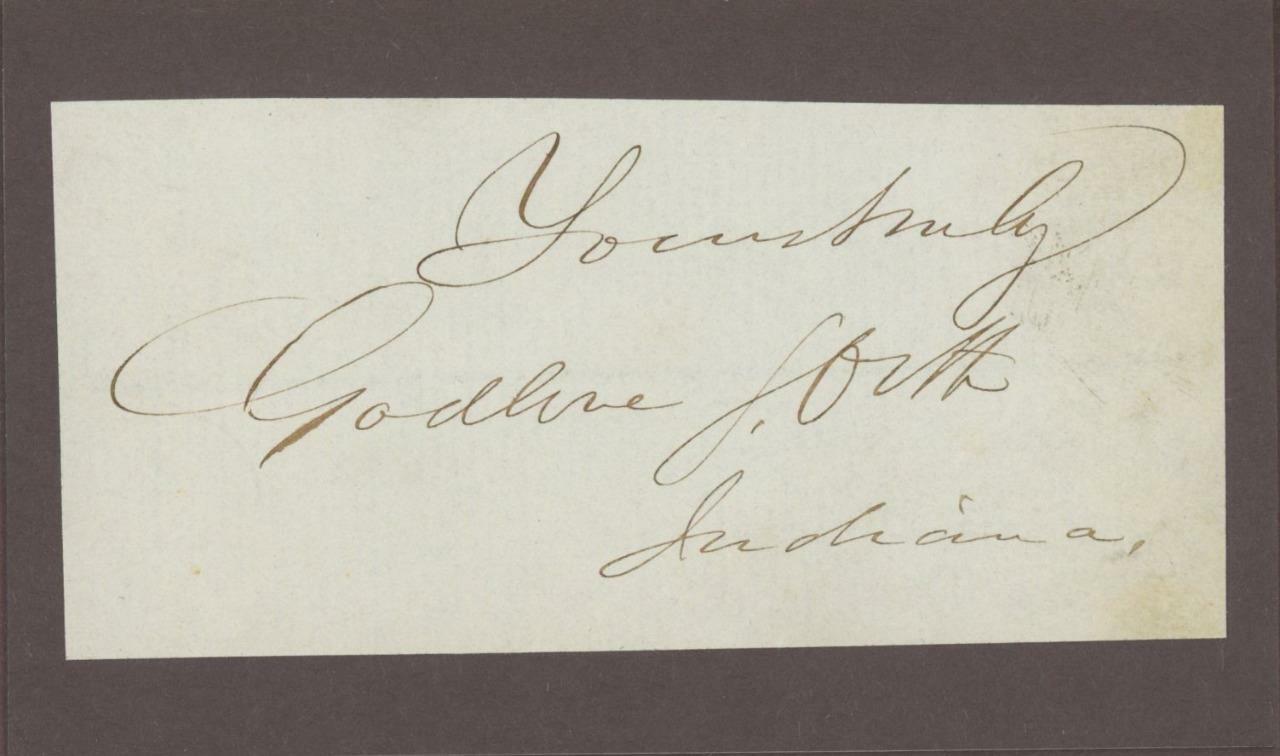 Yours truly
Godlove S. Orth
Indiana.